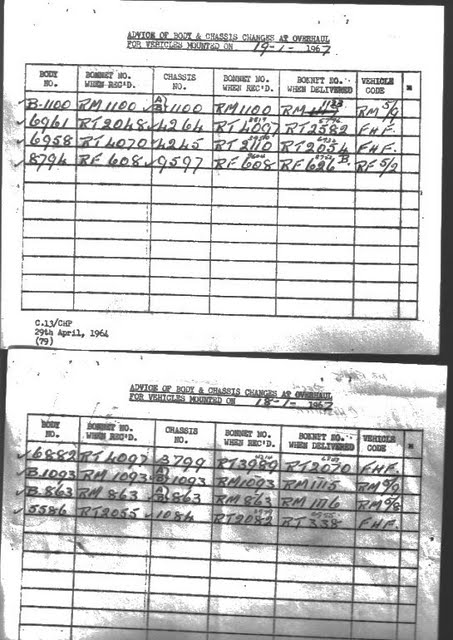 ADVICE OF BODY & CHASSIS CHANGES AT OVERHAUL
FOR VEHICLES MOUNTED ON 19-1-1967
BODY NO. BONNET NO. WHEN REC'D. CHASSIS NO. BONNET NO. WHEN REC'D. BONNET NO. WHEN DELIVERED VEHICLE CODE
B-1100 RM 1100 A) B) 1100 RM 1100 RM 1123 RM 5/9
6961 RT 2048 4264 RT 4097 RT 2582 FHF.
6958 RT 4070 4245 RT 2110 RT 2054 FHF.
8794 RF 608 9597 RF 608 RF 626 B. RF 5/2
C.13/CHP
29th April, 1964
(79)
ADVICE OF BODY & CHASSIS CHANGES AT OVERHAUL
FOR VEHICLES MOUNTED ON 18-1-1967
BODY NO. BONNET NO. WHEN REC'D. CHASSIS NO. BONNET NO. WHEN REC'D. BONNET NO. WHEN DELIVERED VEHICLE CODE
6882 RT 4097 3799 RT 3989 RT 2070 FHF.
B-1093 RM 1093 A) B) 1093 RM 1093 RM 1115 RM 5/9
B-863 RM 863 A) B) 863 RM 863 RM 1176 RM 5/8
5586 RT 2055 1084 RT 2082 RT 338 FHF.